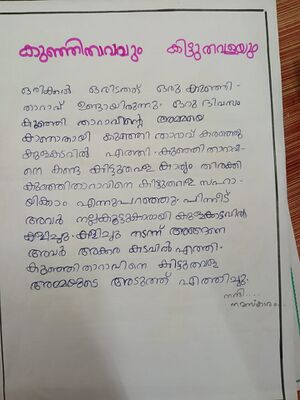 കുഞ്ഞിതാവയും കിട്ടുതവളയും
ഒരിക്കൽ ഒരിടത്ത് ഒരു കുഞ്ഞി-
താറാവ് ഉണ്ടായിരുന്നു. ഒരു ദിവസം
കുഞ്ഞി താറാവിന്റെ അമ്മയെ
കാണാതായി കുഞ്ഞി താറാവ് കരഞ്ഞു
കുളക്കടവിൽ എത്തി. കുഞ്ഞിതാറാവി-
നെ കണ്ട കിട്ടുതവള കാര്യം തിരക്കി
കുഞ്ഞിതാറാവിനെ കിട്ടുതവള സഹാ-
യിക്കാം എന്നുപറഞ്ഞു. പിന്നീട്
അവർ നല്ലകൂട്ടുക്കാരായി കുളക്കടവിൽ
കളിച്ചു. കളിച്ചു നടന്ന് അങ്ങനെ
അവർ അക്കര കടവിൽ എത്തി.
കുഞ്ഞിതാറാവിനെ കിട്ടുതവള
അമ്മയുടെ അടുത്ത് എത്തിച്ചു.
നന്ദി....
നമസ്കാരം...